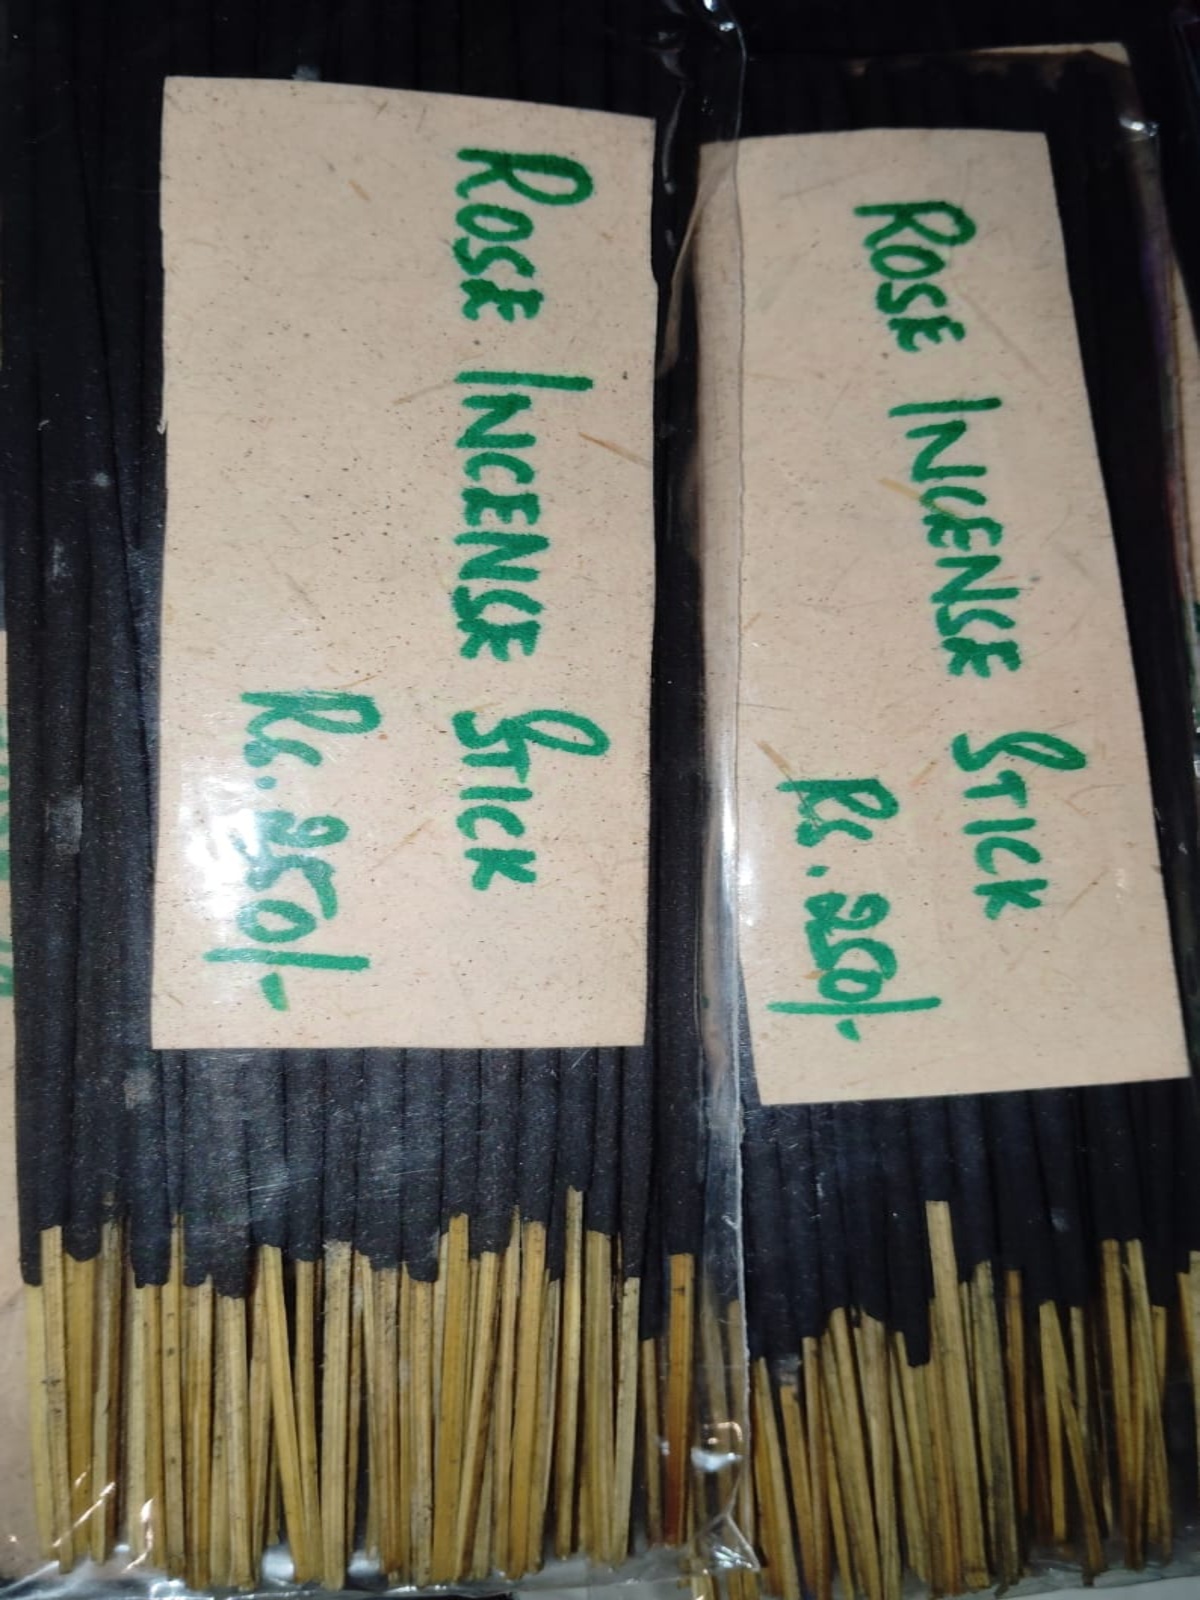 ROSE INCENSE STICK
Rs. 250/-
ROSE INCENSE STICK
Rs. 250/-